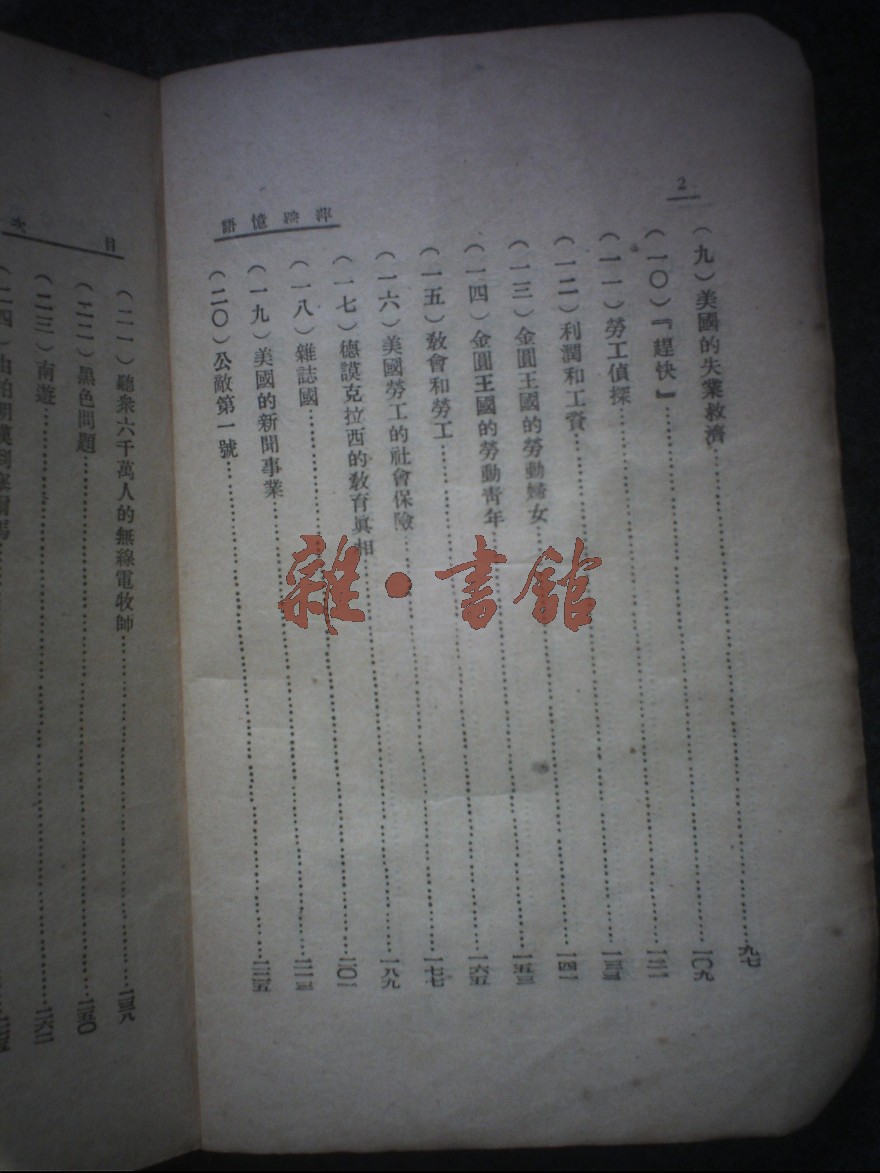 2
萍踪憶語
(九)美國的失業救濟……九七
(一〇)『趕快』……一〇九
(一一)勞工偵探……一二一
(一二)利潤和工資……一三三
(一三)金圓王國的勞動婦女……一四一
(一四)金圓王國的勞動靑年……一五三
(一五)敎會和勞工……一六五
(一六)美國勞工的社會保險……一七七
(一七)德謨克拉西的敎育眞相……一八九
(一八)雜誌國……二〇一
(一九)美國的新聞事業……二一三
(二〇)公敵第一號……二二五
目次
(二一)聽衆六千萬人的無線電牧師……二三八
(二二)黑色問題……二五〇
(二三)南遊……二六二
(二四)由柏明漢到塞爾馬……
雜•書館